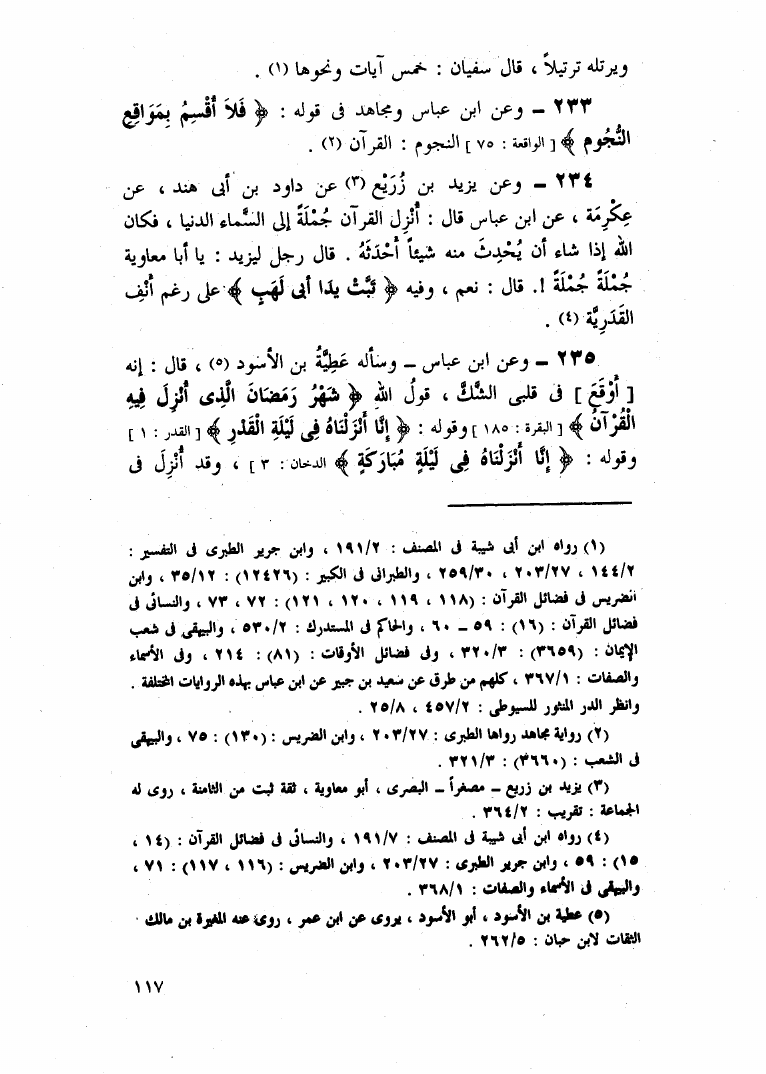 ويرتله ترتيلاً ، قال سفيان : خمس آيات ونحوها (١) .
٢٣٣ ــ وعن ابن عباس ومجاهد فى قوله : ﴿ فَلاَ أُقْسِمُ بِمَوَاقِعِ
النُّجُوم ﴾ [ الواقعة : ٧٥ ] النجوم : القرآن (٢) .
٢٣٤ ــ وعن يزيد بن زُرَيْع (٣) عن داود بن أبى هند ، عن
عِكْرِمَة ، عن ابن عباس قال : أُنْزِل القرآن جُمْلَةً إلى السَّماء الدنيا ، فكان
الله إذا شاء أن يُحْدِثَ منه شيئاً أَحْدَثَهُ . قال رجل ليزيد : يا أبا معاوية
جُمْلَةً جُمْلَةً !. قال : نعم ، وفيه ﴿ تَبَّتْ يدَا أبى لَهَبٍ ﴾ على رغم أنْفِ
القَدَرِيَّة (٤) .
٢٣٥ ــ وعن ابن عباس ــ وسأله عَطِيَّةُ بن الأسود (٥) ، قال : إنه
[ أَوْقَعَ ] فى قلبى الشَّكَّ ، قولُ الله ﴿ شَهْرُ رَمَضَانَ الَّذِى أُنْزِلَ فِيهِ
الْقُرْآنُ ﴾ [ البقرة : ١٨٥ ] وقوله : ﴿ إِنَّا أَنْزَلْنَاهُ فِى لَيْلَةِ الْقَدْرِ ﴾ [ القدر : ١ ]
وقوله : ﴿ إِنَّا أَنْزَلْنَاهُ فِى لَيْلَةٍ مُبَارَكَةٍ ﴾ الدخان : ٣ ] ، وقد أُنْزِلَ فى
(١) رواه ابن أبى شيبة فى المصنف : ١٩١/٢ ، وابن جرير الطبرى فى التفسير :
١٤٤/٢ ، ٢٠٣/٢٧ ، ٢٥٩/٣٠ ، والطبرانى فى الكبير : (١٢٤٢٦) : ٣٥/١٢ ، وابن
الضريس فى فضائل القرآن : (١١٨ ، ١١٩ ، ١٢٠ ، ١٢١) : ٧٢ ، ٧٣ ، والنسائى فى
فضائل القرآن : (١٦) : ٥٩ ــ ٦٠ ، والحاكم فى المستدرك : ٥٣٠/٢ ، والبيهقى فى شعب
الإيمان : (٣٦٥٩) : ٣٢٠/٣ ، وفى فضائل الأوقات : (٨١) : ٢١٤ ، وفى الأسماء
والصفات : ٣٦٧/١ ، كلهم من طرق عن سعيد بن جبير عن ابن عباس بهذه الروايات المختلفة .
وانظر الدر المنثور للسيوطى : ٤٥٧/٢ ، ٢٥/٨ .
(٢) رواية مجاهد رواها الطبرى : ٢٠٣/٢٧ ، وابن الضريس : (١٣٠) : ٧٥ ، والبيهقى
فى الشعب : (٣٦٦٠) : ٣٢١/٣ .
(٣) يزيد بن زريع ــ مصغراً ــ البصرى ، أبو معاوية ، ثقة ثبت من الثامنة ، روى له
الجماعة : تقريب : ٣٦٤/٢ .
(٤) رواه ابن أبى شيبة فى المصنف : ١٩١/٧ ، والنسائى فى فضائل القرآن : (١٤ ،
١٥) : ٥٩ ، وابن جرير الطبرى : ٢٠٣/٢٧ ، وابن الضريس : (١١٦ ، ١١٧) : ٧١ ،
والبيهقى فى الأسماء والصفات : ٣٦٨/١ .
(٥) عطية بن الأسود ، أبو الأسود ، يروى عن ابن عمر ، روى عنه المغيرة بن مالك .
الثقات لابن حبان : ٢٦٢/٥ .
١١٧